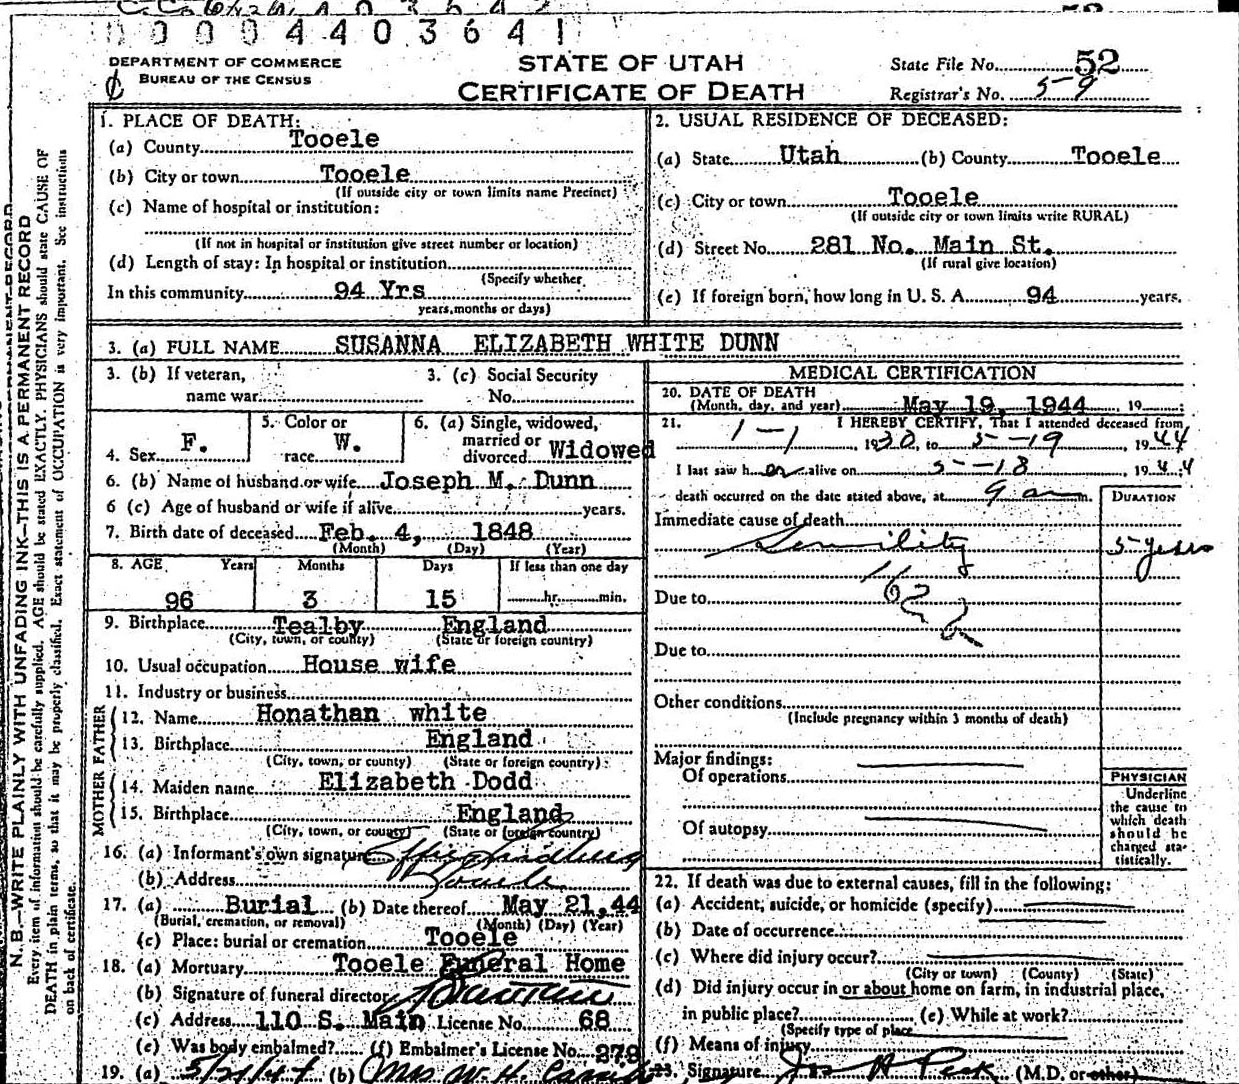 0 0 0 4 4 0 3 6 4 1
DEPARTMENT OF COMMERCE
BUREAU OF THE CENSUS
STATE OF UTAH
CERTIFICATE OF DEATH
State File No. 52
Registrar's No. 59
N. B.—WRITE PLAINLY WITH UNFADING INK—THIS IS A PERMANENT RECORD
Every item of information should be carefully supplied. AGE should be stated EXACTLY. PHYSICIANS should state CAUSE OF
DEATH in plain terms, so that it may be properly classified. Exact statement of OCCUPATION is very important. See instructions
on back of certificate.
1. PLACE OF DEATH:
(a) County Tooele
(b) City or town Tooele
(If outside city or town limits name Precinct)
(c) Name of hospital or institution:
(If not in hospital or institution give street number or location)
(d) Length of stay: In hospital or institution
(Specify whether
In this community 94 Yrs
years, months or days)
2. USUAL RESIDENCE OF DECEASED:
(a) State Utah (b) County Tooele
(c) City or town Tooele
(If outside city or town limits write RURAL)
(d) Street No. 281 No. Main St.
(If rural give location)
(e) If foreign born, how long in U. S. A. 94 years.
3. (a) FULL NAME SUSANNA ELIZABETH WHITE DUNN
3. (b) If veteran,
name war
3. (c) Social Security
No.
4. Sex F.
5. Color or
race W.
6. (a) Single, widowed,
married or
divorced Widowed
6. (b) Name of husband or wife Joseph M. Dunn
6 (c) Age of husband or wife if alive years.
7. Birth date of deceased Feb. 4, 1848
(Month) (Day) (Year)
8. AGE Years Months Days If less than one day
96 3 15 hr. min.
9. Birthplace Tealby England
(City, town, or county) (State or foreign country)
10. Usual occupation House wife
11. Industry or business
FATHER
12. Name Honathan white
13. Birthplace England
(City, town, or county) (State or foreign country)
MOTHER
14. Maiden name Elizabeth Dodd
15. Birthplace England
(City, town, or county) (State or foreign country)
16. (a) Informant's own signature
(b) Address Tooele
17. (a) Burial (b) Date thereof May 21, 44
(Burial, cremation, or removal) (Month) (Day) (Year)
(c) Place: burial or cremation Tooele
18. (a) Mortuary Tooele Funeral Home
(b) Signature of funeral director
(c) Address 110 S. Main License No. 68
(e) Was body embalmed? (f) Embalmer's License No. 279
19. (a) 5/21/44 (b) Mrs W. H.
MEDICAL CERTIFICATION
20. DATE OF DEATH
(Month, day, and year) May 19, 1944, 19 ;
21. I HEREBY CERTIFY, That I attended deceased from
1-1 1930, to 5-19 1944
I last saw her alive on 5-18 1944
death occurred on the date stated above, at 9 am m.
DURATION
Immediate cause of death
Senility 5 years
162 2
Due to
Due to
Other conditions
(Include pregnancy within 3 months of death)
Major findings:
Of operations
Of autopsy
PHYSICIAN
Underline
the cause to
which death
should be
charged sta-
tistically.
22. If death was due to external causes, fill in the following:
(a) Accident, suicide, or homicide (specify)
(b) Date of occurrence
(c) Where did injury occur?
(City or town) (County) (State)
(d) Did injury occur in or about home on farm, in industrial place,
in public place? (e) While at work?
(Specify type of place
(f) Means of injury
23. Signature Jos H Peck (M.D. or other)